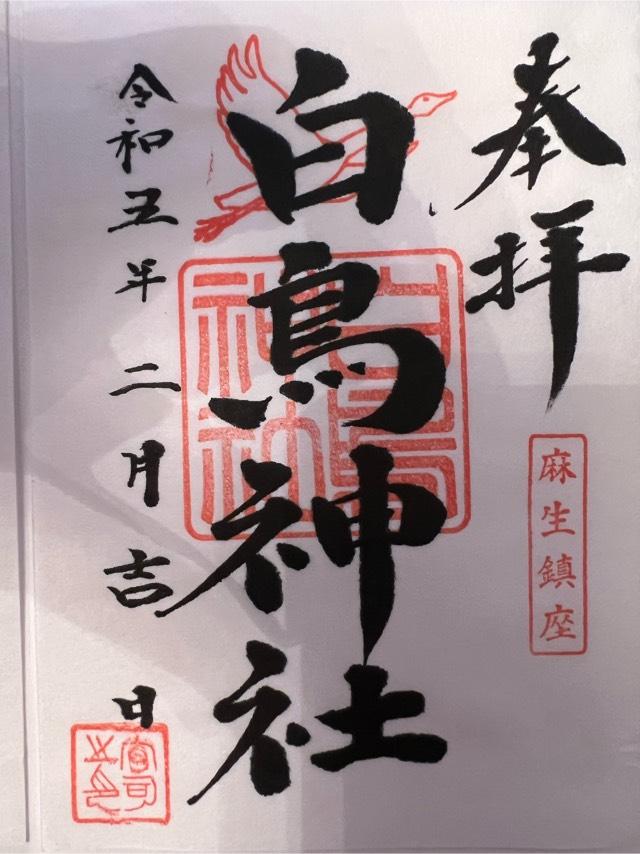 奉拝
麻生鎮座
白鳥神社
白鳥神社
令和五年二月吉日
宮司之印